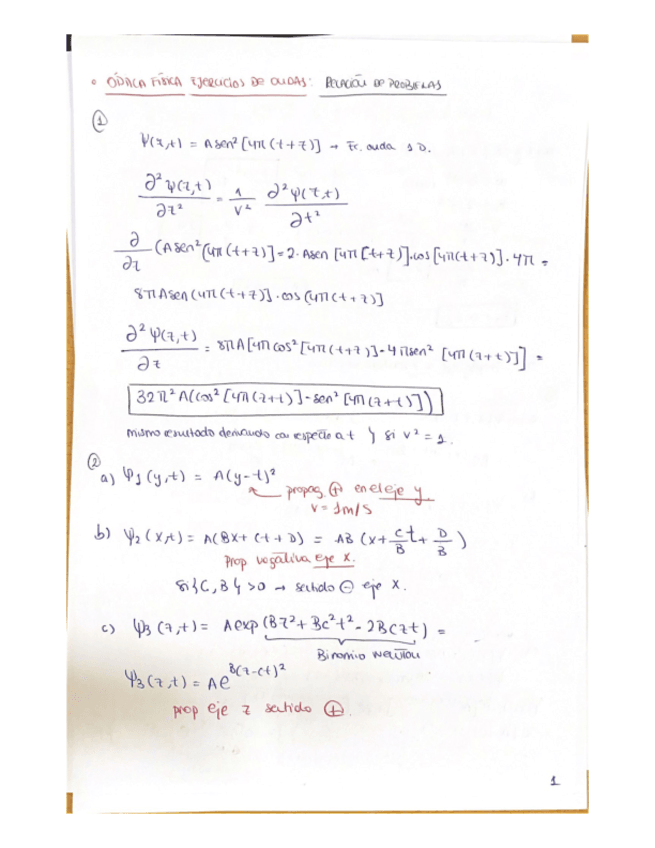 • ÓPTICA FÍSICA EJERCICIOS DE ONDAS: RELACIÓN DE PROBLEMAS
①
Ψ(z,t) = A sen² [4π (t+z)] → Ec. onda 1D.
∂²Ψ(z,t)/∂z² = 1/v² ∂²Ψ(z,t)/∂t²
∂/∂z (A sen² [4π (t+z)] = 2·A sen [4π [t+z)]·cos [4π(t+z)]·4π =
8πA sen (4π (t+z)]·cos (4π(t+z)]
∂²Ψ(z,t)/∂z = 8πA [4π cos² [4π (t+z)] - 4π sen² [4π (z+t)]] =
32π² A (cos² [4π (z+t)] - sen² [4π (z+t)])
mismo resultado derivando con respecto a t y si v² = 1.
②
a) Ψ1 (y,t) = A(y-t)²
propag. ⊕ en el eje y.
v = 1m/s
b) Ψ2 (x,t) = A(Bx + Ct + D) = AB (x + C/B t + D/B)
Prop negativa eje x.
Si {C, B} > 0 → sentido ⊖ eje x.
c) Ψ3 (z,t) = A exp (Bz² + Bc²t² - 2Bczt) =
Binomio Newton
Ψ3 (z,t) = A e^B(z-ct)²
prop eje z sentido ⊕.
1